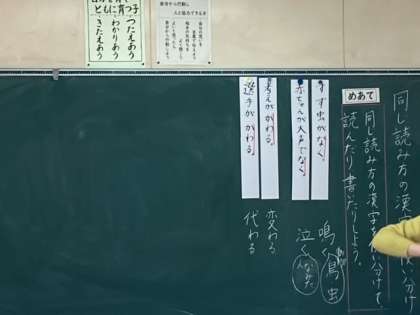 ともに育つ子
つたえあう
わかりあう
きたえあう
同じ読み方の漢字 使い分け
めあて
同じ読み方の漢字を使い分けて、
読んだり書いたりしよう。
すず虫がなく。
赤ちゃんが大声でなく。
考えがかわる。
選手がかわる。
鳴く 鳥 虫
泣く なみだ
変わる
代わる